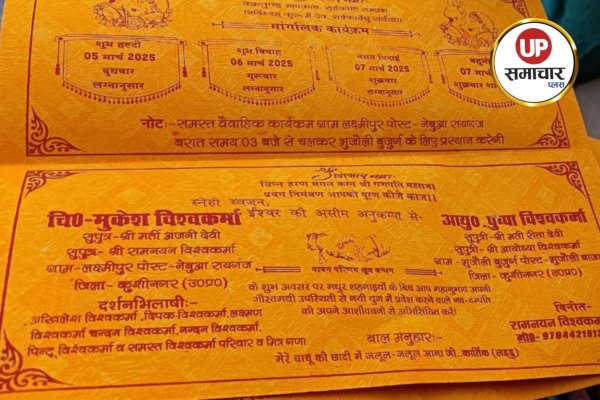 वक्रतुण्ड महाकाय, सूर्यकोटि समप्रभ
निर्विघ्नम् कुरू मे देव, सर्वकार्येषु सर्वदा
मांगलिक कार्यक्रम
शुभ हल्दी
05 मार्च 2025
बुधवार
लग्नानुसार
शुभ विवाह
06 मार्च 2025
गुरूवार
लग्नानुसार
07 मार्च 2025
शुक्रवार
लग्नानुसार
07 मार्च
शुक्रवार
UP
समाचार
प्लस
नोट:-समस्त वैवाहिक कार्यकम ग्राम लक्ष्मीपुर पोस्ट- नेबुआ रायगंज
बरात समय 03 बजे से चलकर भुजौली बुजुर्ग के लिए प्रस्थान करेगी
विघ्न हरण मंगल करण श्री गणपति महाराज
प्रथम निमंत्रण आपको पूरण कीजे काज।
स्नेही स्वजन,
ईश्वर की असीम अनुकम्पा से-
चि०-मुकेश विश्वकर्मा
सुपुत्र-श्री मती अंजनी देवी
सुपुत्र-श्री रामनयन विश्वकर्मा
ग्राम-लक्ष्मीपुर पोस्ट-नेबुआ रायगंज
जिला- कुशीनगर (उ०प्र०)
आयु० पुष्पा विश्वकर्मा
सुपुत्री-श्री मती शीला देवी
सुपुत्री-श्री अयोध्या विश्वकर्मा
ग्राम-भुजौली बुजुर्ग पोस्ट-भुजौली बाजा
जिला- कुशीनगर (उ०प्र०)
पावन परिणय सूत्र बन्धन
के शुभ अवसर पर मधुर शहनाइयों के बिच आप महानुभाव अपनी
गौरवमयी उपस्थिती से नयी युग में प्रवेश करने वाले नव-दम्पति
को अपने आर्शीवचनो से अभिसिंचित करें।
दर्शनभिलाषी:-
अखिलेश विश्वकर्मा ,दिपक विश्वकर्मा,लक्ष्मण
विश्वकर्मा चन्दन विश्वकर्मा,नन्दन विश्वकर्मा,
पिन्टू विश्वकर्मा व समस्त विश्वकर्मा परिवार व मित्र गण।
विनीत-
रामनयन विश्वकर्मा
मो०- 9794421513
बाल मनुहार:-
मेरे चाचू की छादी में जलूल-जलूल आना जी..कार्तिक (लड्डू)